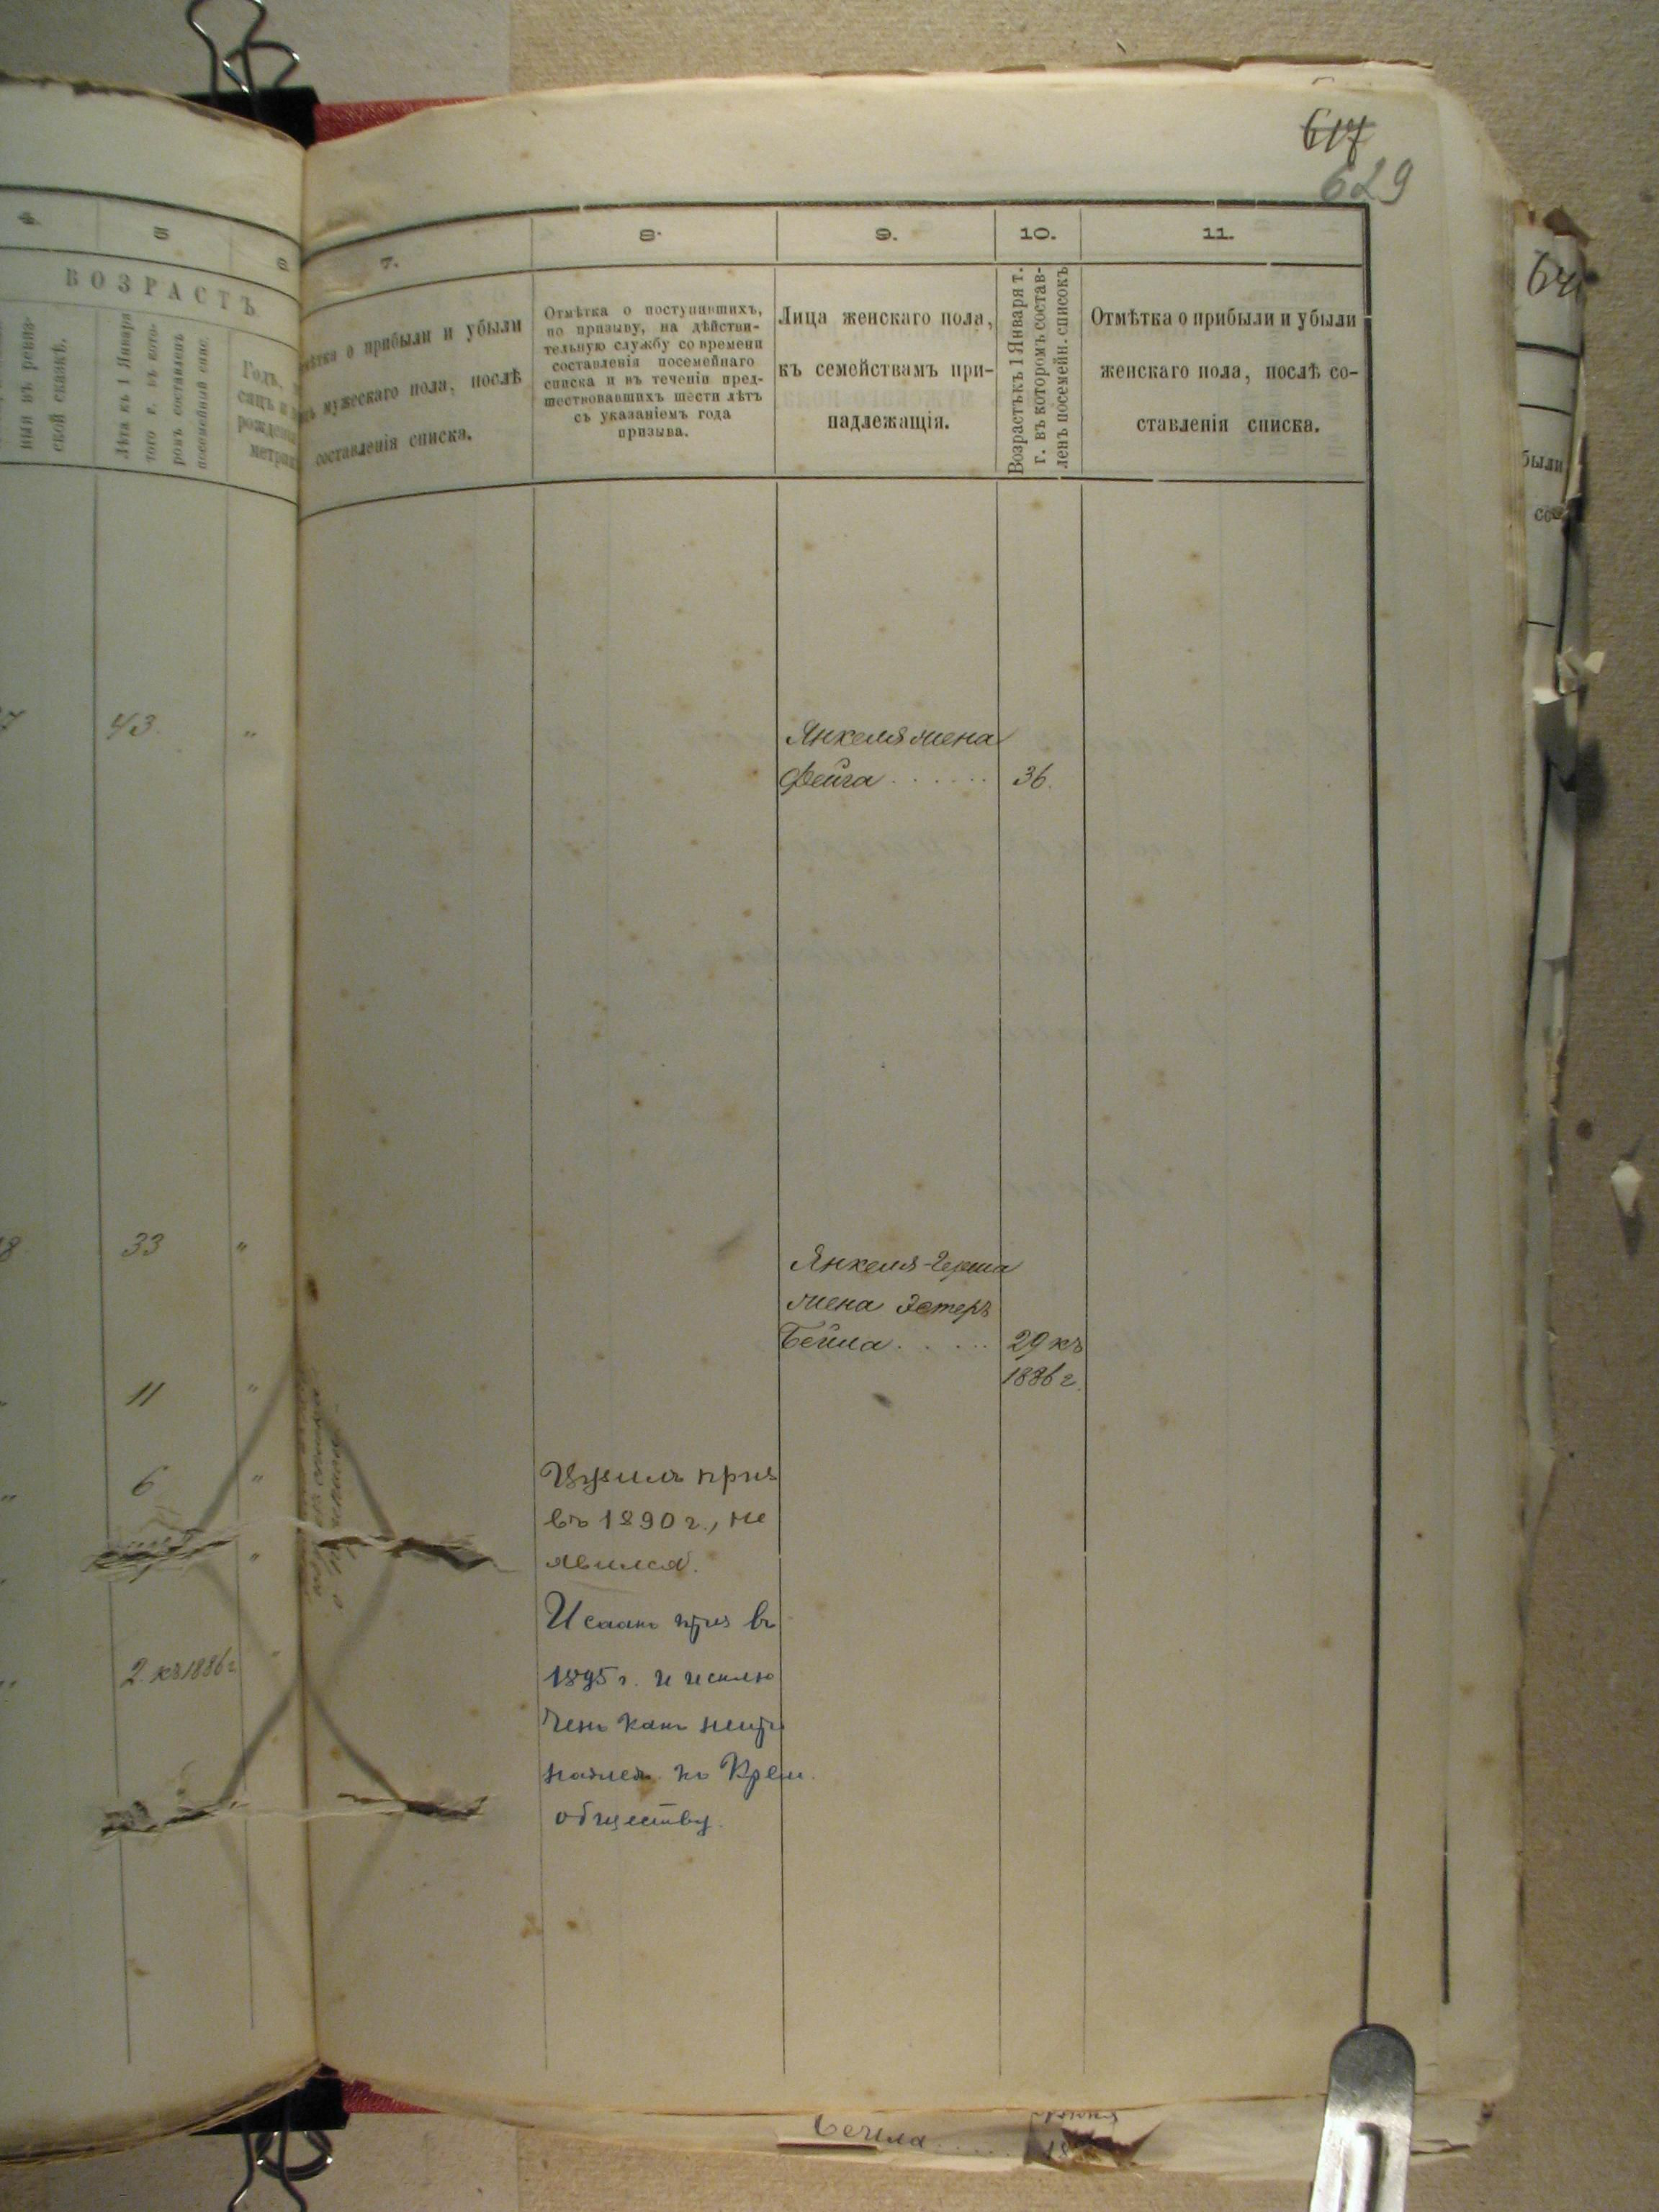 617
629
4.
5
6
7.
8.
9.
10.
11.
ВОЗРАСТЪ
ской сказкѣ.
Лѣта къ 1 Января
того г. въ кото-
ромъ составленъ
посемейный спис.
о прибыли и убыли
мужескаго пола, послѣ
составленія списка.
Отмѣтка о поступившихъ,
по призыву, на дѣйстви-
тельную службу со времени
составленія посемейнаго
списка и въ теченіи пред-
шествовавшихъ шести лѣтъ
съ указаніемъ года
призыва.
Лица женскаго пола,
къ семействамъ при-
надлежащія.
Возрастъ къ 1 Января т.
г. въ которомъ состав-
ленъ посемейн. списокъ
Отмѣтка о прибыли и убыли
женскаго пола, послѣ со-
ставленія списка.
43. "
Янкеля жена
Фейга . . . . . . 36.
33 "
Янкеля-Герша
жена Эстеръ
Бейла . . . . . 29 къ
1886 г.
11 "
6 "
"
2. къ 1886 г. "
въ 1890 г., не
явился.
Исаакъ приз въ
1895 г. и исклю
ченъ какъ непри
надлеж. къ Крем.
обществу.
были
Бейла . . . . . 18